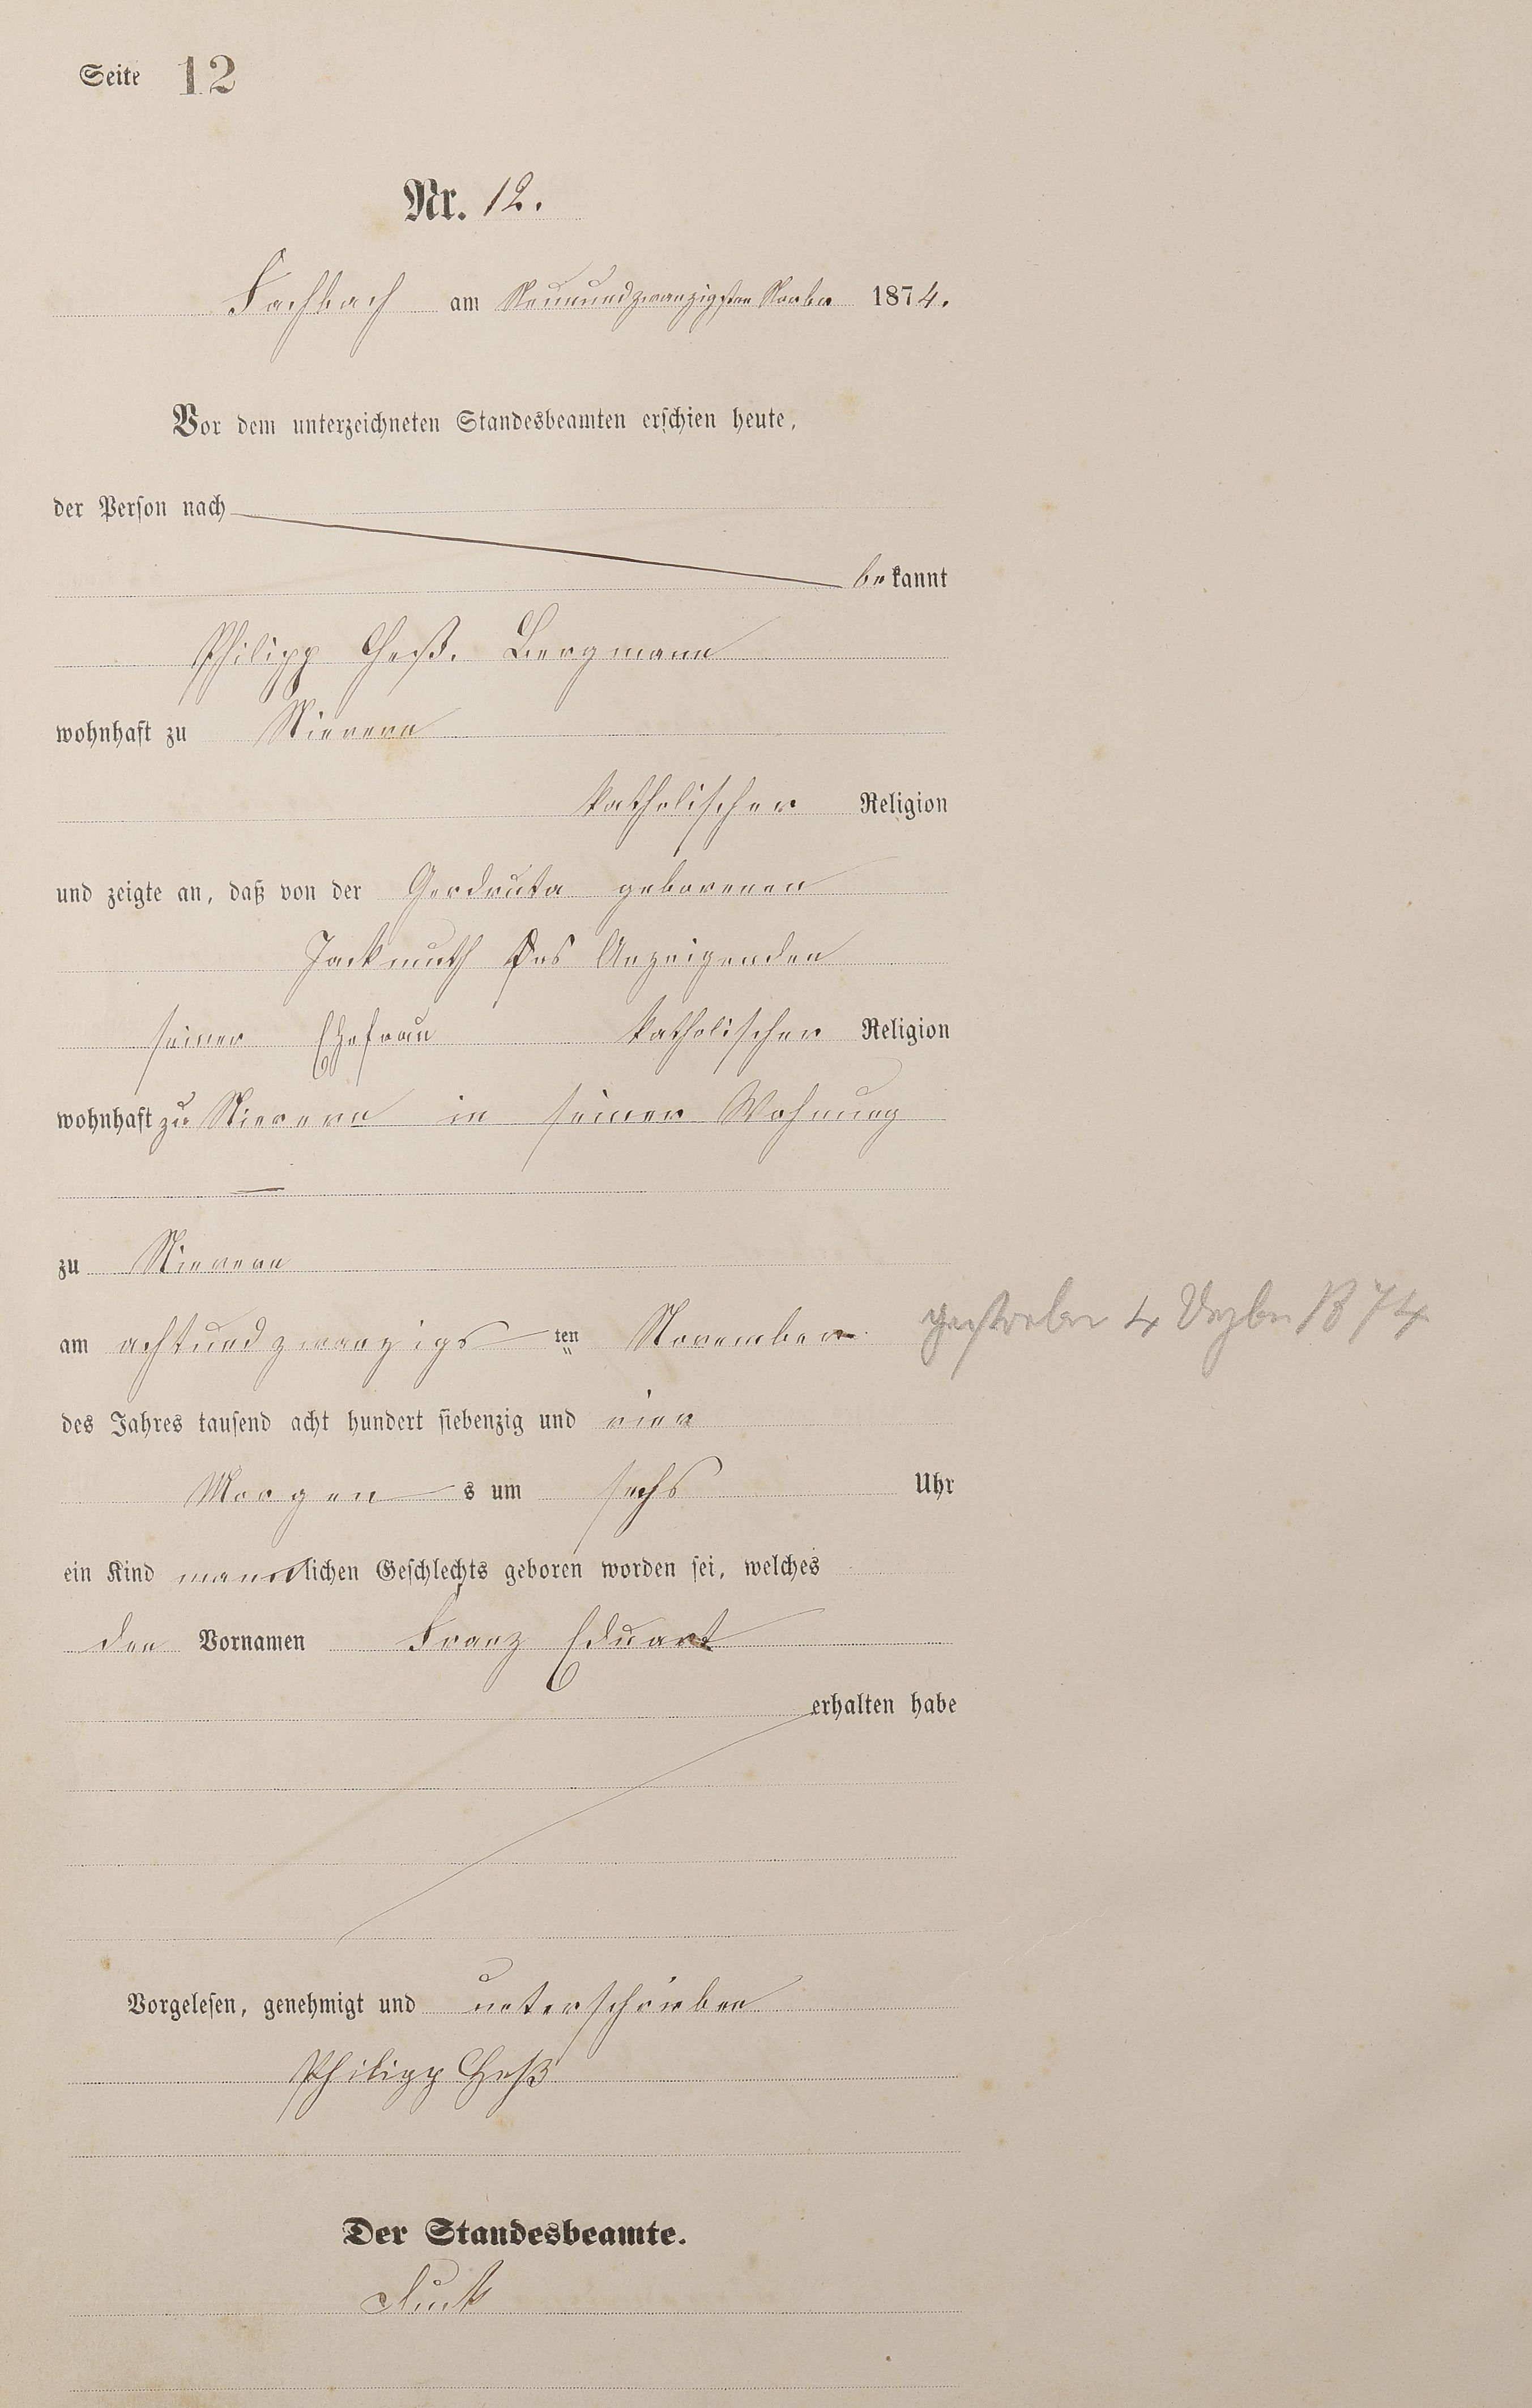 Seite 12
Nr. 12.
Fachbach am Neunundzwanzigsten Novbr 1874.
Vor dem unterzeichneten Standesbeamten erschien heute,
der Person nach
bekannt
Philipp Heß. Bergmann
wohnhaft zu Nievern
katholischer Religion
und zeigte an, daß von der Gerdruta geborenen
Jackmuth des Anzeigenden
seiner Ehefrau katholischer Religion
wohnhaft zu Nievern in seiner Wohnung
zu Nievern
am achtundzwanzigsten November
gestorben 4 Dezbr 1874
des Jahres tausend acht hundert siebenzig und vier
Morgens um sechs Uhr
ein Kind mannlichen Geschlechts geboren worden sei, welches
den Vornamen Franz Eduart
erhalten habe
Vorgelesen, genehmigt und unterschrieben
Philipp Heß
Der Standesbeamte.